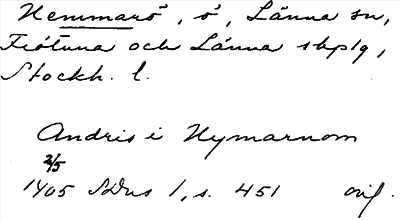 Hemmarö, ö, Länna sn,
Frötuna och Länna skplg,
Stockh. l.
Andris i Hymarnom
2/5
1405 SDns 1, s. 451 orig.